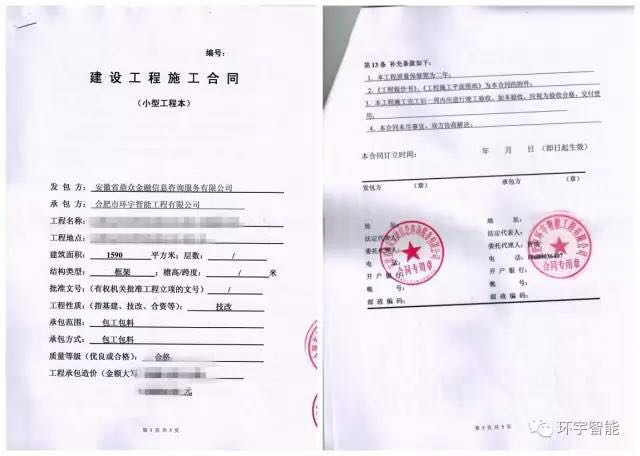 编号:
建设工程施工合同
(小型工程本)
发 包 方: 安徽省鼎众金融信息咨询服务有限公司
承 包 方: 合肥市环宇智能工程有限公司
工程名称:
工程地点:
建筑面积: 1590 平方米; 层数: /
结构类型: 框架 ; 檐高/跨度: / 米
批准文号: (有权机关批准工程立项的文号) /
工程性质: (指基建、技改、合资等): 技改
承包范围: 包工包料
承包方式: 包工包料
质量等级 (优良或合格): 合格
工程承包造价 (金额大写
元
第 1 页 共 5 页
第 13 条 补充条款如下:
1、本工程质量保修期为二年;
2、《工程报价书》、《工程施工平面图纸》为本合同的附件;
3、本工程施工完工后一周内应进行竣工验收, 如未验收, 应视为验收合格, 交付使用;
4、本合同未尽事宜, 双方协商解决。
本合同订立时间: 年 月 日 (即日起生效)
发包方 (章) 承包方 (章)
地 址: 地 址:
法定代表人: 法定代表人:
委托代理人: 委托代理人:
电 话: 电 话:
开 户 银 行: 开 户 银 行:
帐 号: 帐 号:
邮 政 编 码: 邮 政 编 码:
合同专用章
合同专用章
第 5 页 共 5 页
环宇智能